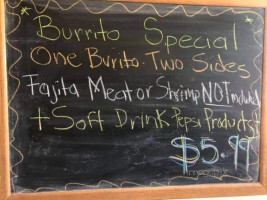 Burrito Special
One Burito. Two Sides
Fajita Meat or Shrimp NOT included
+ Soft Drink Pepsi Products!
$5.99